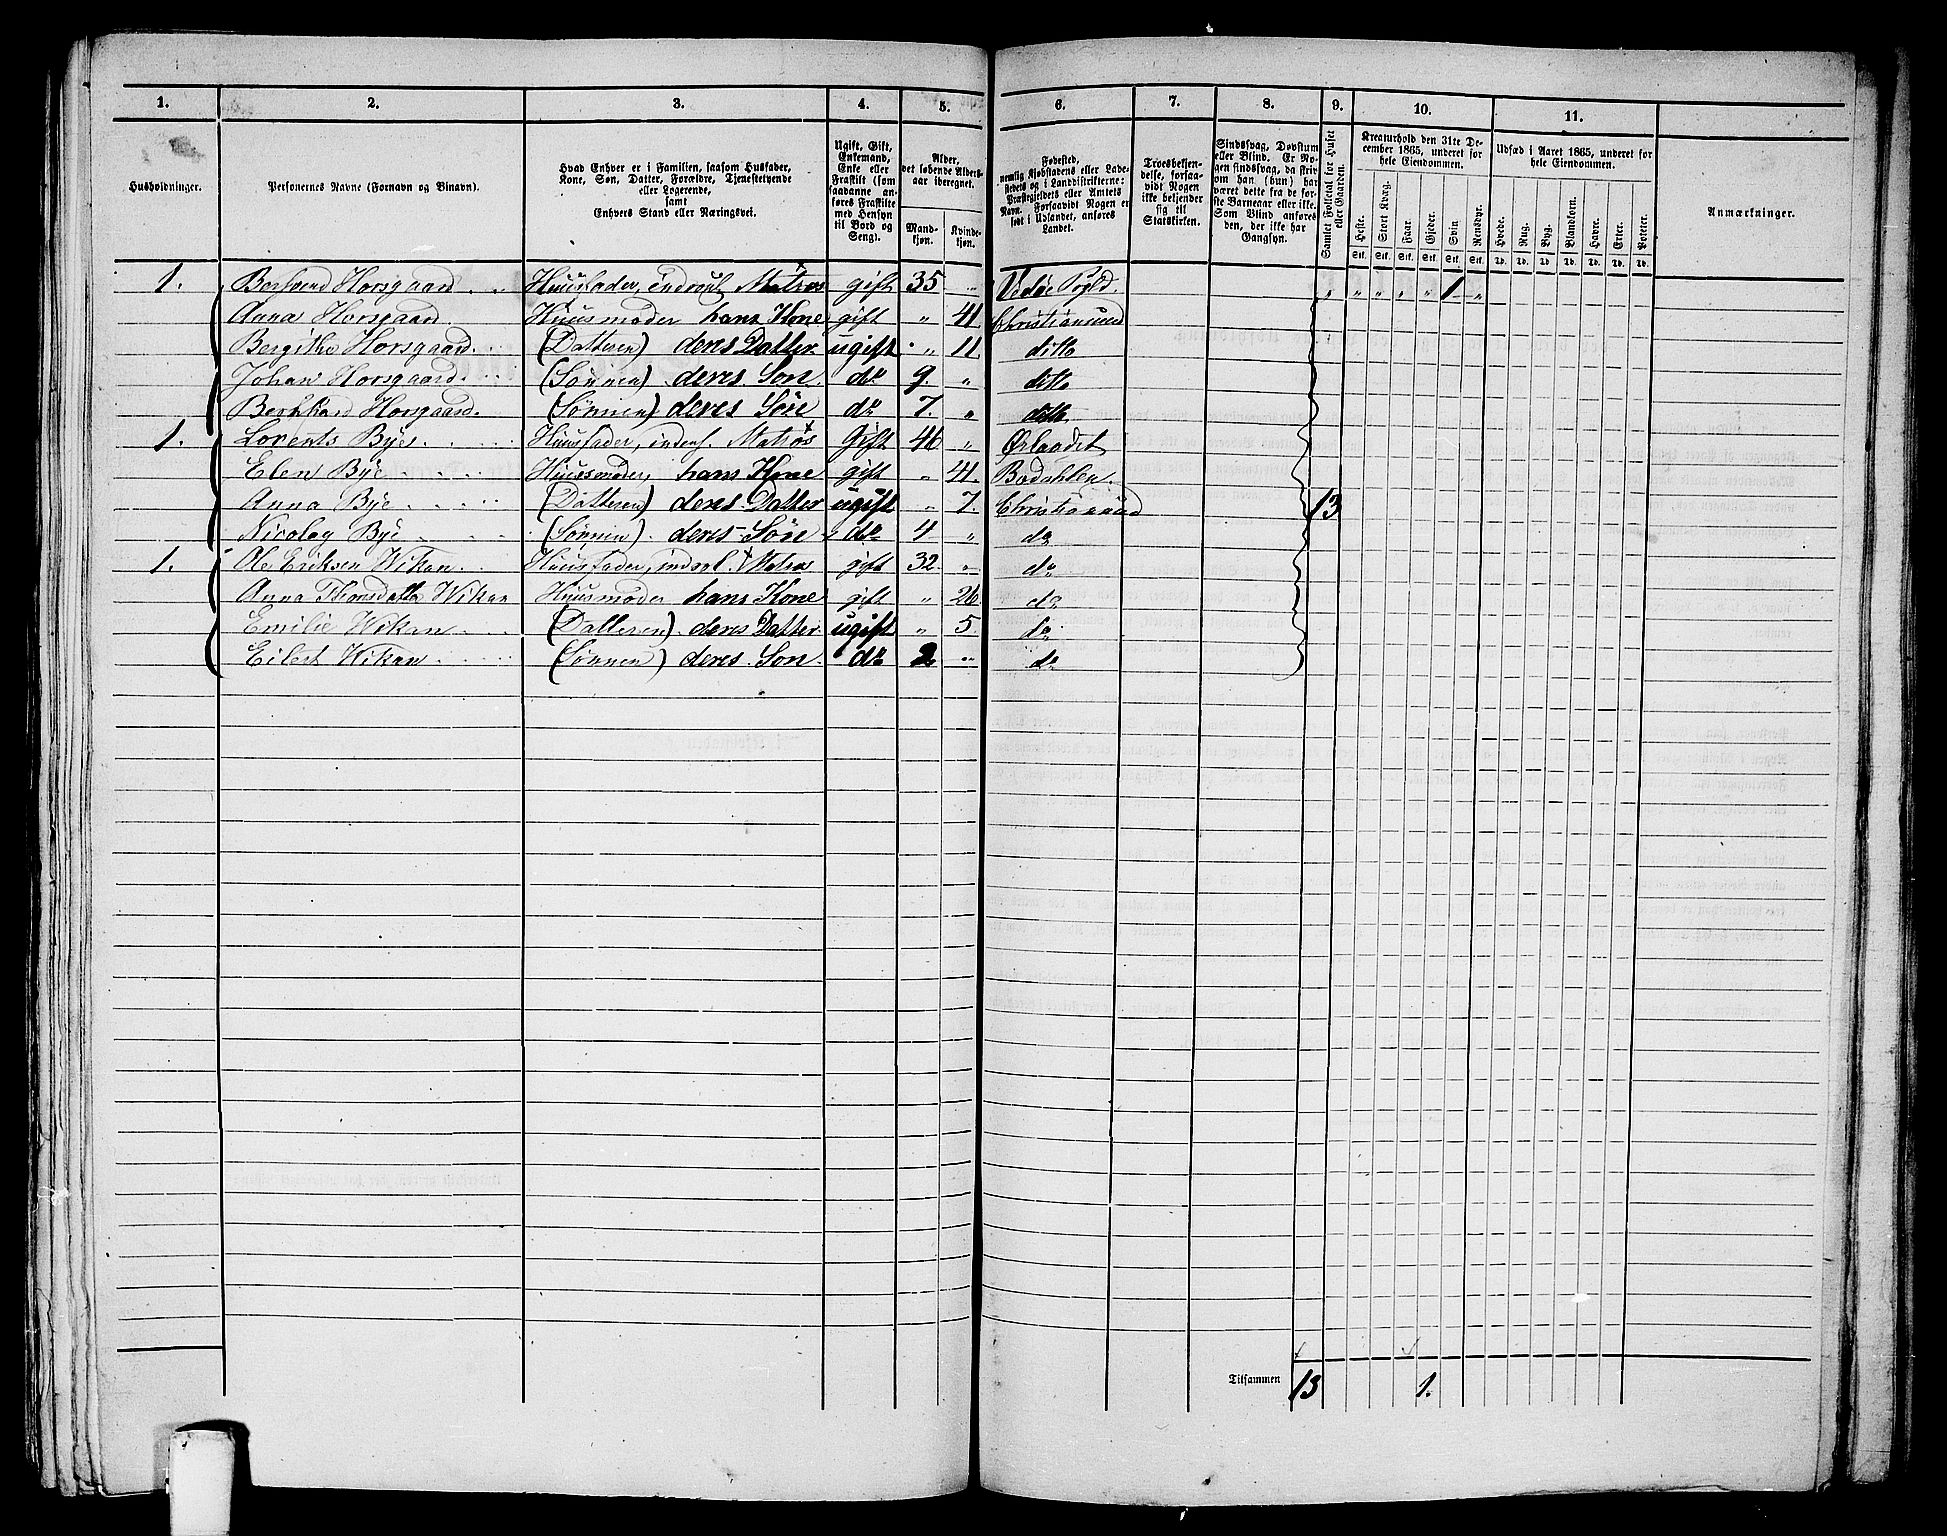 1. 2. 3. 4. 5. 6. 7. 8. 9. 10. 11.
Husholdninger.
Personernes Navne (Fornavn og Binavn).
Hvad Enhver er i Familien, saasom Husfader,
Kone, Søn, Datter, Forældre, Tjenestetyende
eller Logerende,
samt
Enhvers Stand eller Næringsvei.
Ugift, Gift,
Enkemand,
Enke eller
Fraskilt (som
saadanne an-
føres Fraskilte
med Hensyn
til Bord og
Seng).
Alder,
det løbende Alders-
aar iberegnet.
Mand-
kjøn.
Kvinde-
kjøn.
Fødested,
nemlig Kjøbstadens eller Lade-
stedets og i Landdistrikterne:
Præstegjeldets eller Annets
Navn. Forsaavidt Nogen er
født i Udlandet, anføres
Landet.
Troesbekjen-
delse, forsaa-
vidt Nogen
ikke bekjender
sig til
Statskirken.
Sindssvag, Døvstum
eller Blind. Er No-
gen sindssvag, da skriv
om han (hun) har
været dette fra de før-
ste Barneaar eller ikke.
Som Blind anføres
den, der ikke har
Gangsyn.
Samlet Folketal for Huset
eller Gaarden.
Kreaturhold den 31te De-
cember 1865, underet for
hele Eiendommen.
Heste. Stort Kvæg. Faar. Gjeder. Svin. Rensdyr.
Stk. Stk. Stk. Stk. Stk. Stk.
Udsæd i Aaret 1865, underet for
hele Eiendommen.
Hvede. Rug. Byg. Blandkorn. Havre. Erter. Poteter.
Td. Td. Td. Td. Td. Td. Td.
Anmærkninger.
1. Horsgaard Huusfader, Matros gift 35 „ „ „ „ „ „ 1 „
Anna Horsgaard Huusmoder hans Kone gift „ 41. Christiansund
Bergithe Horsgaard (Datteren) deres Datter ugift „ 11. ditto
Johan Horsgaard (Sønnen) deres Søn do 9. „ ditto
Horsgaard (Sønnen) deres Søn do 7. „ ditto
1. Lorents Bye Huusfader, Matros Gift 46 „ Ørlandet
Elen Bye Huusmoder, hans Kone gift „ 41.
Anna Bye (Datteren) deres Datter ugift „ 7. Christiansund 13
Nicolay Bye (Sønnen) deres Søn do 4 „ do
1. Ole Eriksen Wikan Huusfader, Matros gift 32. „ do
Anna Wikan Huusmoder hans Kone gift „ 26. do
Emilie Wikan (Datteren) deres Datter ugift „ 5. do
Eilert Wikan (Sønnen) deres Søn do 2 „ do
Tilsammen 13 1.